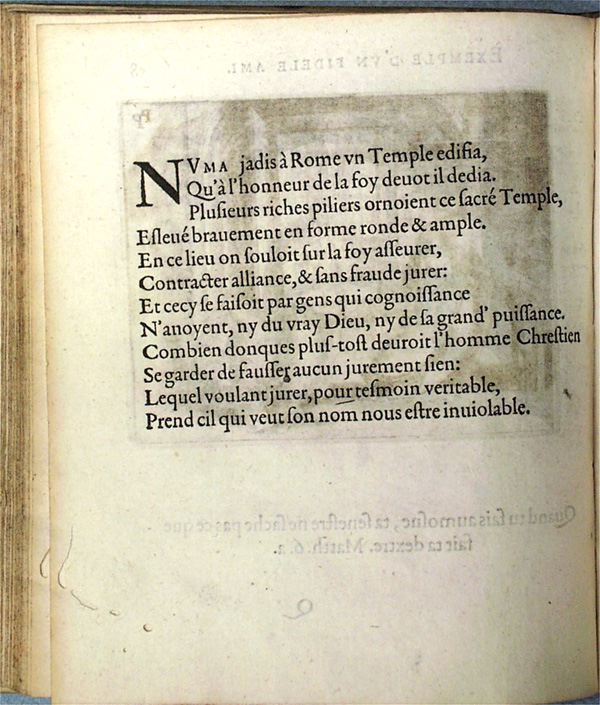 NVMA jadis à Rome vn Temple edifia,
Qu'à l'honneur de la foy deuot il dedia.
Plusieurs riches piliers ornoient ce sacré Temple,
Esleué brauement en forme ronde & ample.
En ce lieu on souloit sur la foy asseurer,
Contracter alliance, & sans fraude jurer:
Et cecy se faisoit par gens qui cognoissance
N'anoyent, ny du vray Dieu, ny de sa grand' puissance.
Combien donques plus-tost deuroit l'homme Chrestien
Se garder de fausser aucun jurement sien:
Lequel voulant jurer, pour tesmoin veritable,
Prend cil qui veut son nom nous estre inuiolable.